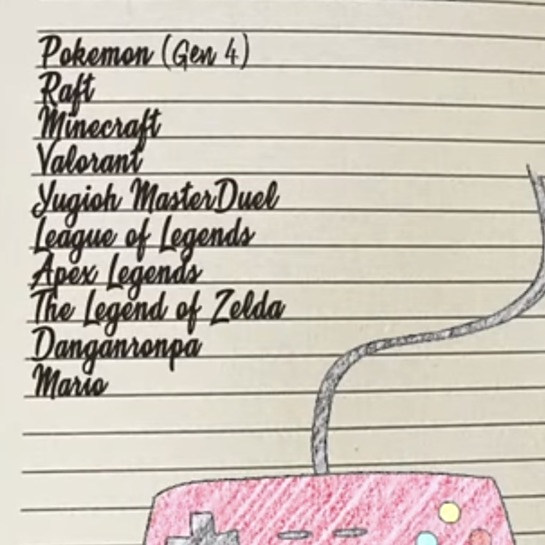 Pokemon (Gen 4)
Raft
Minecraft
Valorant
Yugioh MasterDuel
League of Legends
Apex Legends
The Legend of Zelda
Danganronpa
Mario